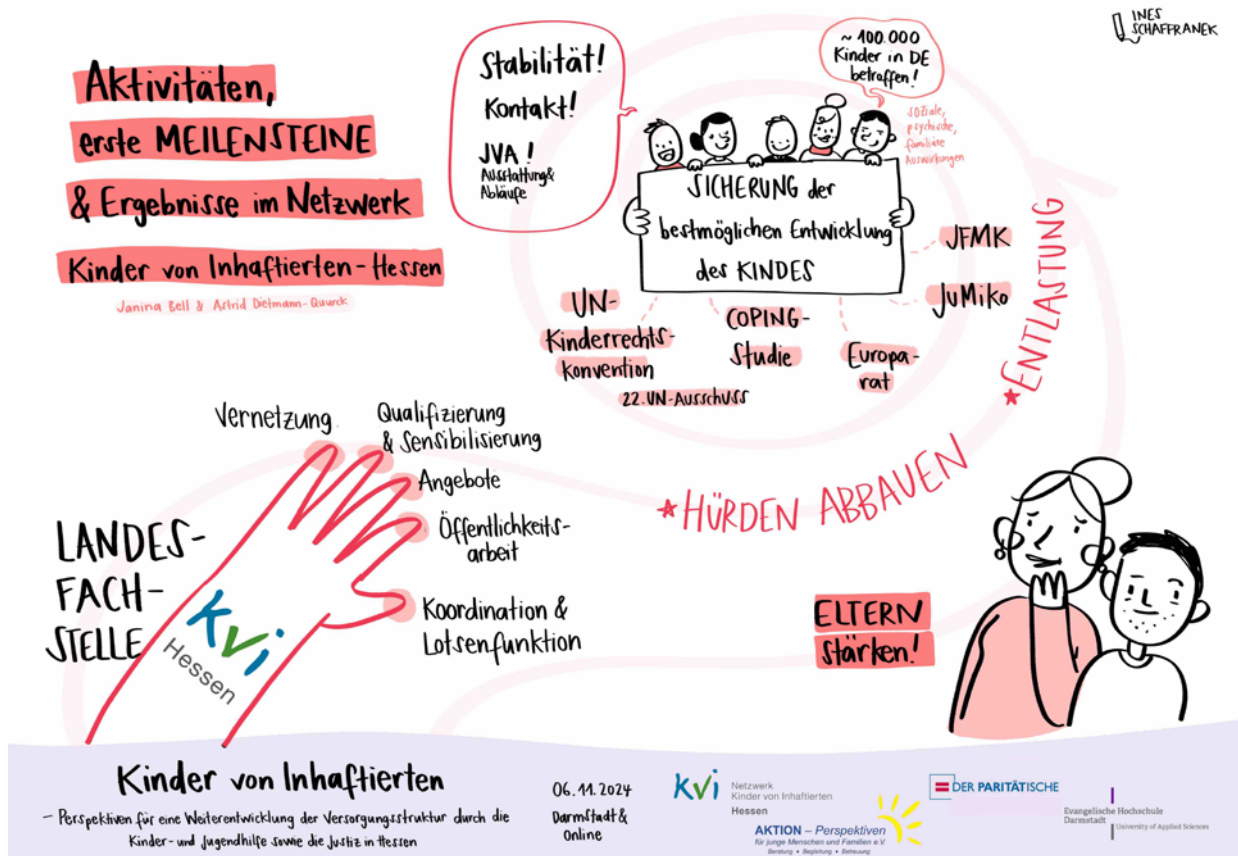 INES
SCHAFFRANEK
Aktivitäten,
erste MEILENSTEINE
& Ergebnisse im Netzwerk
Kinder von Inhaftierten-Hessen
Janina Bell & Astrid Dietmann-Quurck
Stabilität!
Kontakt!
JVA!
Ausstattung&
Abläufe
~ 100.000
Kinder in DE
betroffen!
soziale,
psychische,
familiäre
Auswirkungen
SICHERUNG der
bestmöglichen Entwicklung
des KINDES
JFMK
JuMiKo
UN-
Kinderrechts-
konvention
22. UN-Ausschuss
COPING-
Studie
Europa-
rat
*ENTLASTUNG
*HÜRDEN ABBAUEN
Vernetzung
Qualifizierung
& Sensibilisierung
Angebote
Öffentlichkeits-
arbeit
Koordination &
Lotsenfunktion
LANDES-
FACH-
STELLE
kvi
Hessen
ELTERN
stärken!
Kinder von Inhaftierten
– Perspektiven für eine Weiterentwicklung der Versorgungsstruktur durch die
Kinder- und Jugendhilfe sowie die Justiz in Hessen
06.11.2024
Darmstadt &
Online
kvi
Netzwerk
Kinder von Inhaftierten
Hessen
AKTION – Perspektiven
für junge Menschen und Familien e.V.
Beratung • Begleitung • Betreuung
DER PARITÄTISCHE
Evangelische Hochschule
Darmstadt
University of Applied Sciences